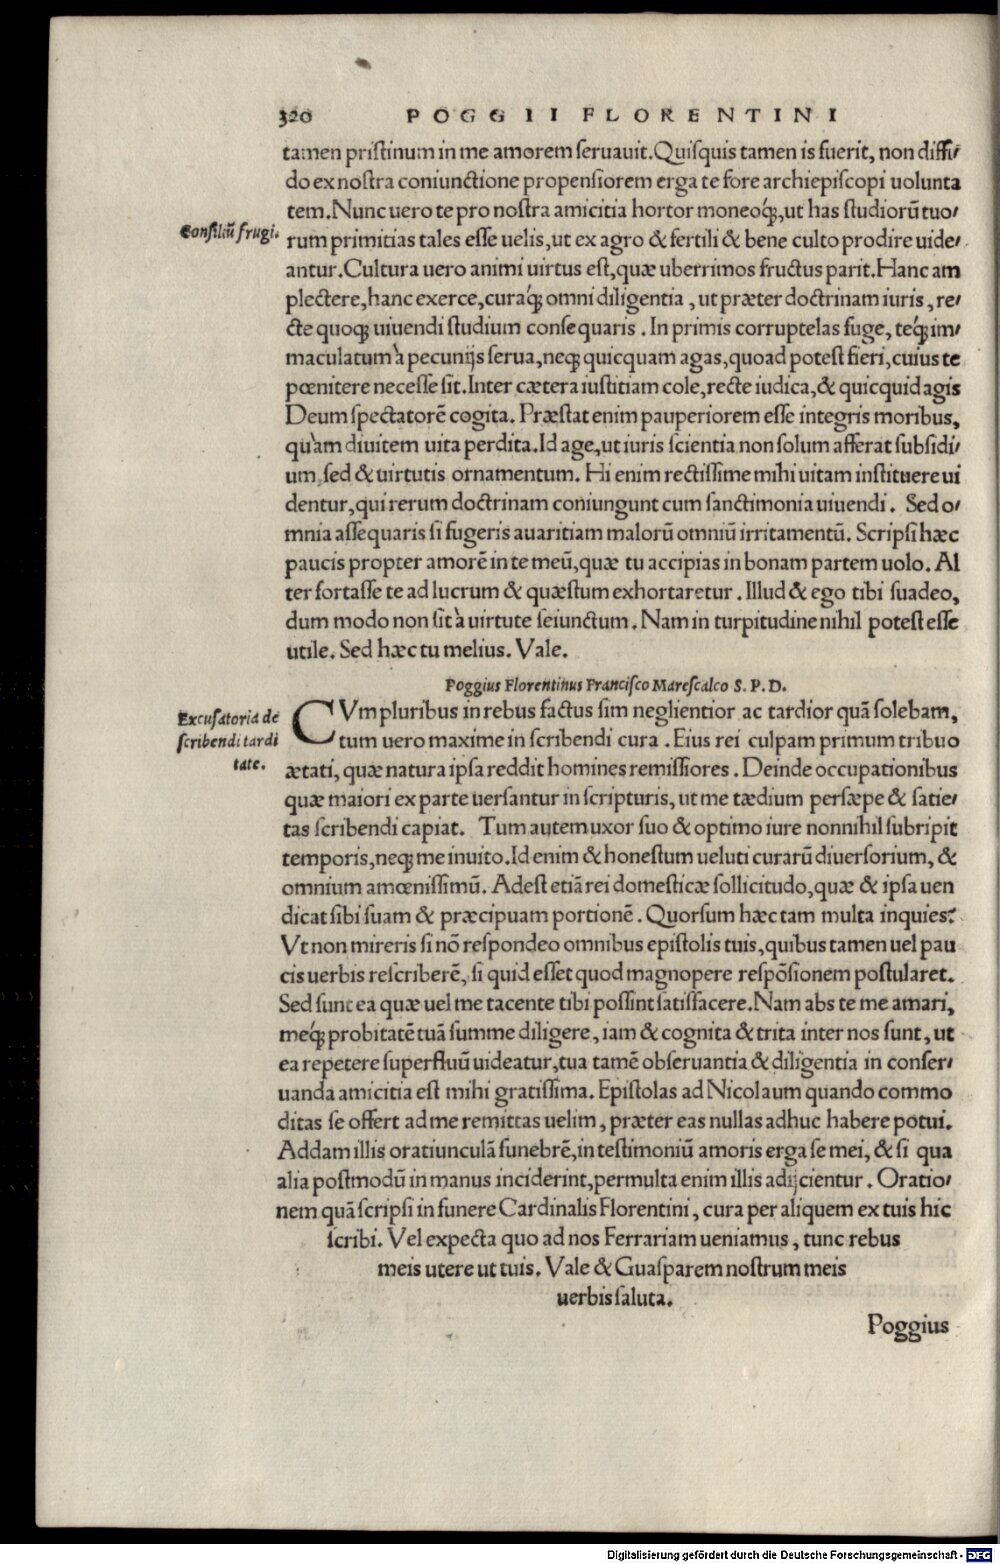 320 POGGII FLORENTINI
tamen priſtinum in me amorem ſeruauit. Quiſquis tamen is fuerit, non diffi⸗
do ex noſtra coniunctione propenſiorem erga te fore archiepiſcopi uolunta
tem. Nunc uero te pro noſtra amicitia hortor moneoq́;, ut has ſtudiorũ tuo⸗
Conſiliũ frugi.
rum primitias tales eſſe uelis, ut ex agro & fertili & bene culto prodire uide⸗
antur. Cultura uero animi uirtus eſt, quæ uberrimos fructus parit. Hanc am
plectere, hanc exerce, curaq́; omni diligentia, ut præter doctrinam iuris, re⸗
cte quoq; uiuendi ſtudium conſequaris. In primis corruptelas fuge, teq́; im⸗
maculatum à pecunijs ſerua, neq; quicquam agas, quoad poteſt fieri, cuius te
pœnitere neceſſe ſit. Inter cætera iuſtitiam cole, recte iudica, & quicquid agis
Deum ſpectatorẽ cogita. Præſtat enim pauperiorem eſſe integris moribus,
quàm diuitem uita perdita. Id age, ut iuris ſcientia non ſolum afferat ſubſidi⸗
um, ſed & uirtutis ornamentum. Hi enim rectiſſime mihi uitam inſtituere ui
dentur, qui rerum doctrinam coniungunt cum ſanctimonia uiuendi. Sed o⸗
mnia aſſequaris ſi fugeris auaritiam malorũ omniũ irritamentũ. Scripſi hæc
paucis propter amorẽ in te meũ, quæ tu accipias in bonam partem uolo. Al
ter fortaſſe te ad lucrum & quæſtum exhortaretur. Illud & ego tibi ſuadeo,
dum modo non ſit à uirtute ſeiunctum. Nam in turpitudine nihil poteſt eſſe
utile. Sed hæc tu melius. Vale.
Poggius Florentinus Franciſco Mareſcalco S. P. D.
Excuſatoria de
ſcribendi tardi
tate.
CVm pluribus in rebus factus ſim neglientior ac tardior quã ſolebam,
tum uero maxime in ſcribendi cura. Eius rei culpam primum tribuo
ætati, quæ natura ipſa reddit homines remiſſiores. Deinde occupationibus
quæ maiori ex parte uerſantur in ſcripturis, ut me tædium perſæpe & ſatie⸗
tas ſcribendi capiat. Tum autem uxor ſuo & optimo iure nonnihil ſubripit
temporis, neq; me inuito. Id enim & honeſtum ueluti curarũ diuerſorium, &
omnium amœniſſimũ. Adeſt etiã rei domeſticæ ſollicitudo, quæ & ipſa uen
dicat ſibi ſuam & præcipuam portionẽ. Quorſum hæc tam multa inquies?
Vt non mireris ſi nõ reſpondeo omnibus epiſtolis tuis, quibus tamen uel pau
cis uerbis reſcriberẽ, ſi quid eſſet quod magnopere reſpõſionem poſtularet.
Sed ſunt ea quæ uel me tacente tibi poſſint ſatiſfacere. Nam abs te me amari,
meq́; probitatẽ tuã ſumme diligere, iam & cognita & trita inter nos ſunt, ut
ea repetere ſuperfluũ uideatur, tua tamẽ obſeruantia & diligentia in conſer⸗
uanda amicitia eſt mihi gratiſſima. Epiſtolas ad Nicolaum quando commo
ditas ſe offert ad me remittas uelim, præter eas nullas adhuc habere potui.
Addam illis oratiunculã funebrẽ, in teſtimoniũ amoris erga ſe mei, & ſi qua
alia poſtmodũ in manus inciderint, permulta enim illis adijcientur. Oratio⸗
nem quã ſcripſi in funere Cardinalis Florentini, cura per aliquem ex tuis hic
ſcribi. Vel expecta quo ad nos Ferrariam ueniamus, tunc rebus
meis utere ut tuis. Vale & Guaſparem noſtrum meis
uerbis ſaluta.
Poggius
Digitalisierung gefördert durch die Deutsche Forschungsgemeinschaft - DFG